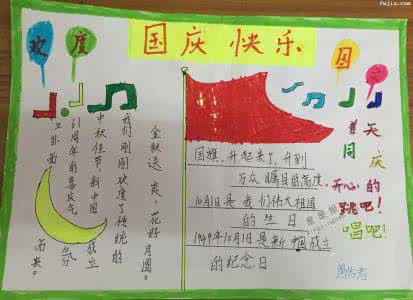 欢度
国庆快乐
国
普天
同庆
开心的
跳吧！
唱吧！
金秋送爽，花好月圆。
我们刚刚欢度了传统的
中秋佳节，新中国成立
61周年的喜庆气氛
又扑面
而来。
国旗，升起来了，升到
万众瞩目的高度，
10月1日是我们伟大祖国
的生日
1949年10月1日是新中国成立
的纪念日